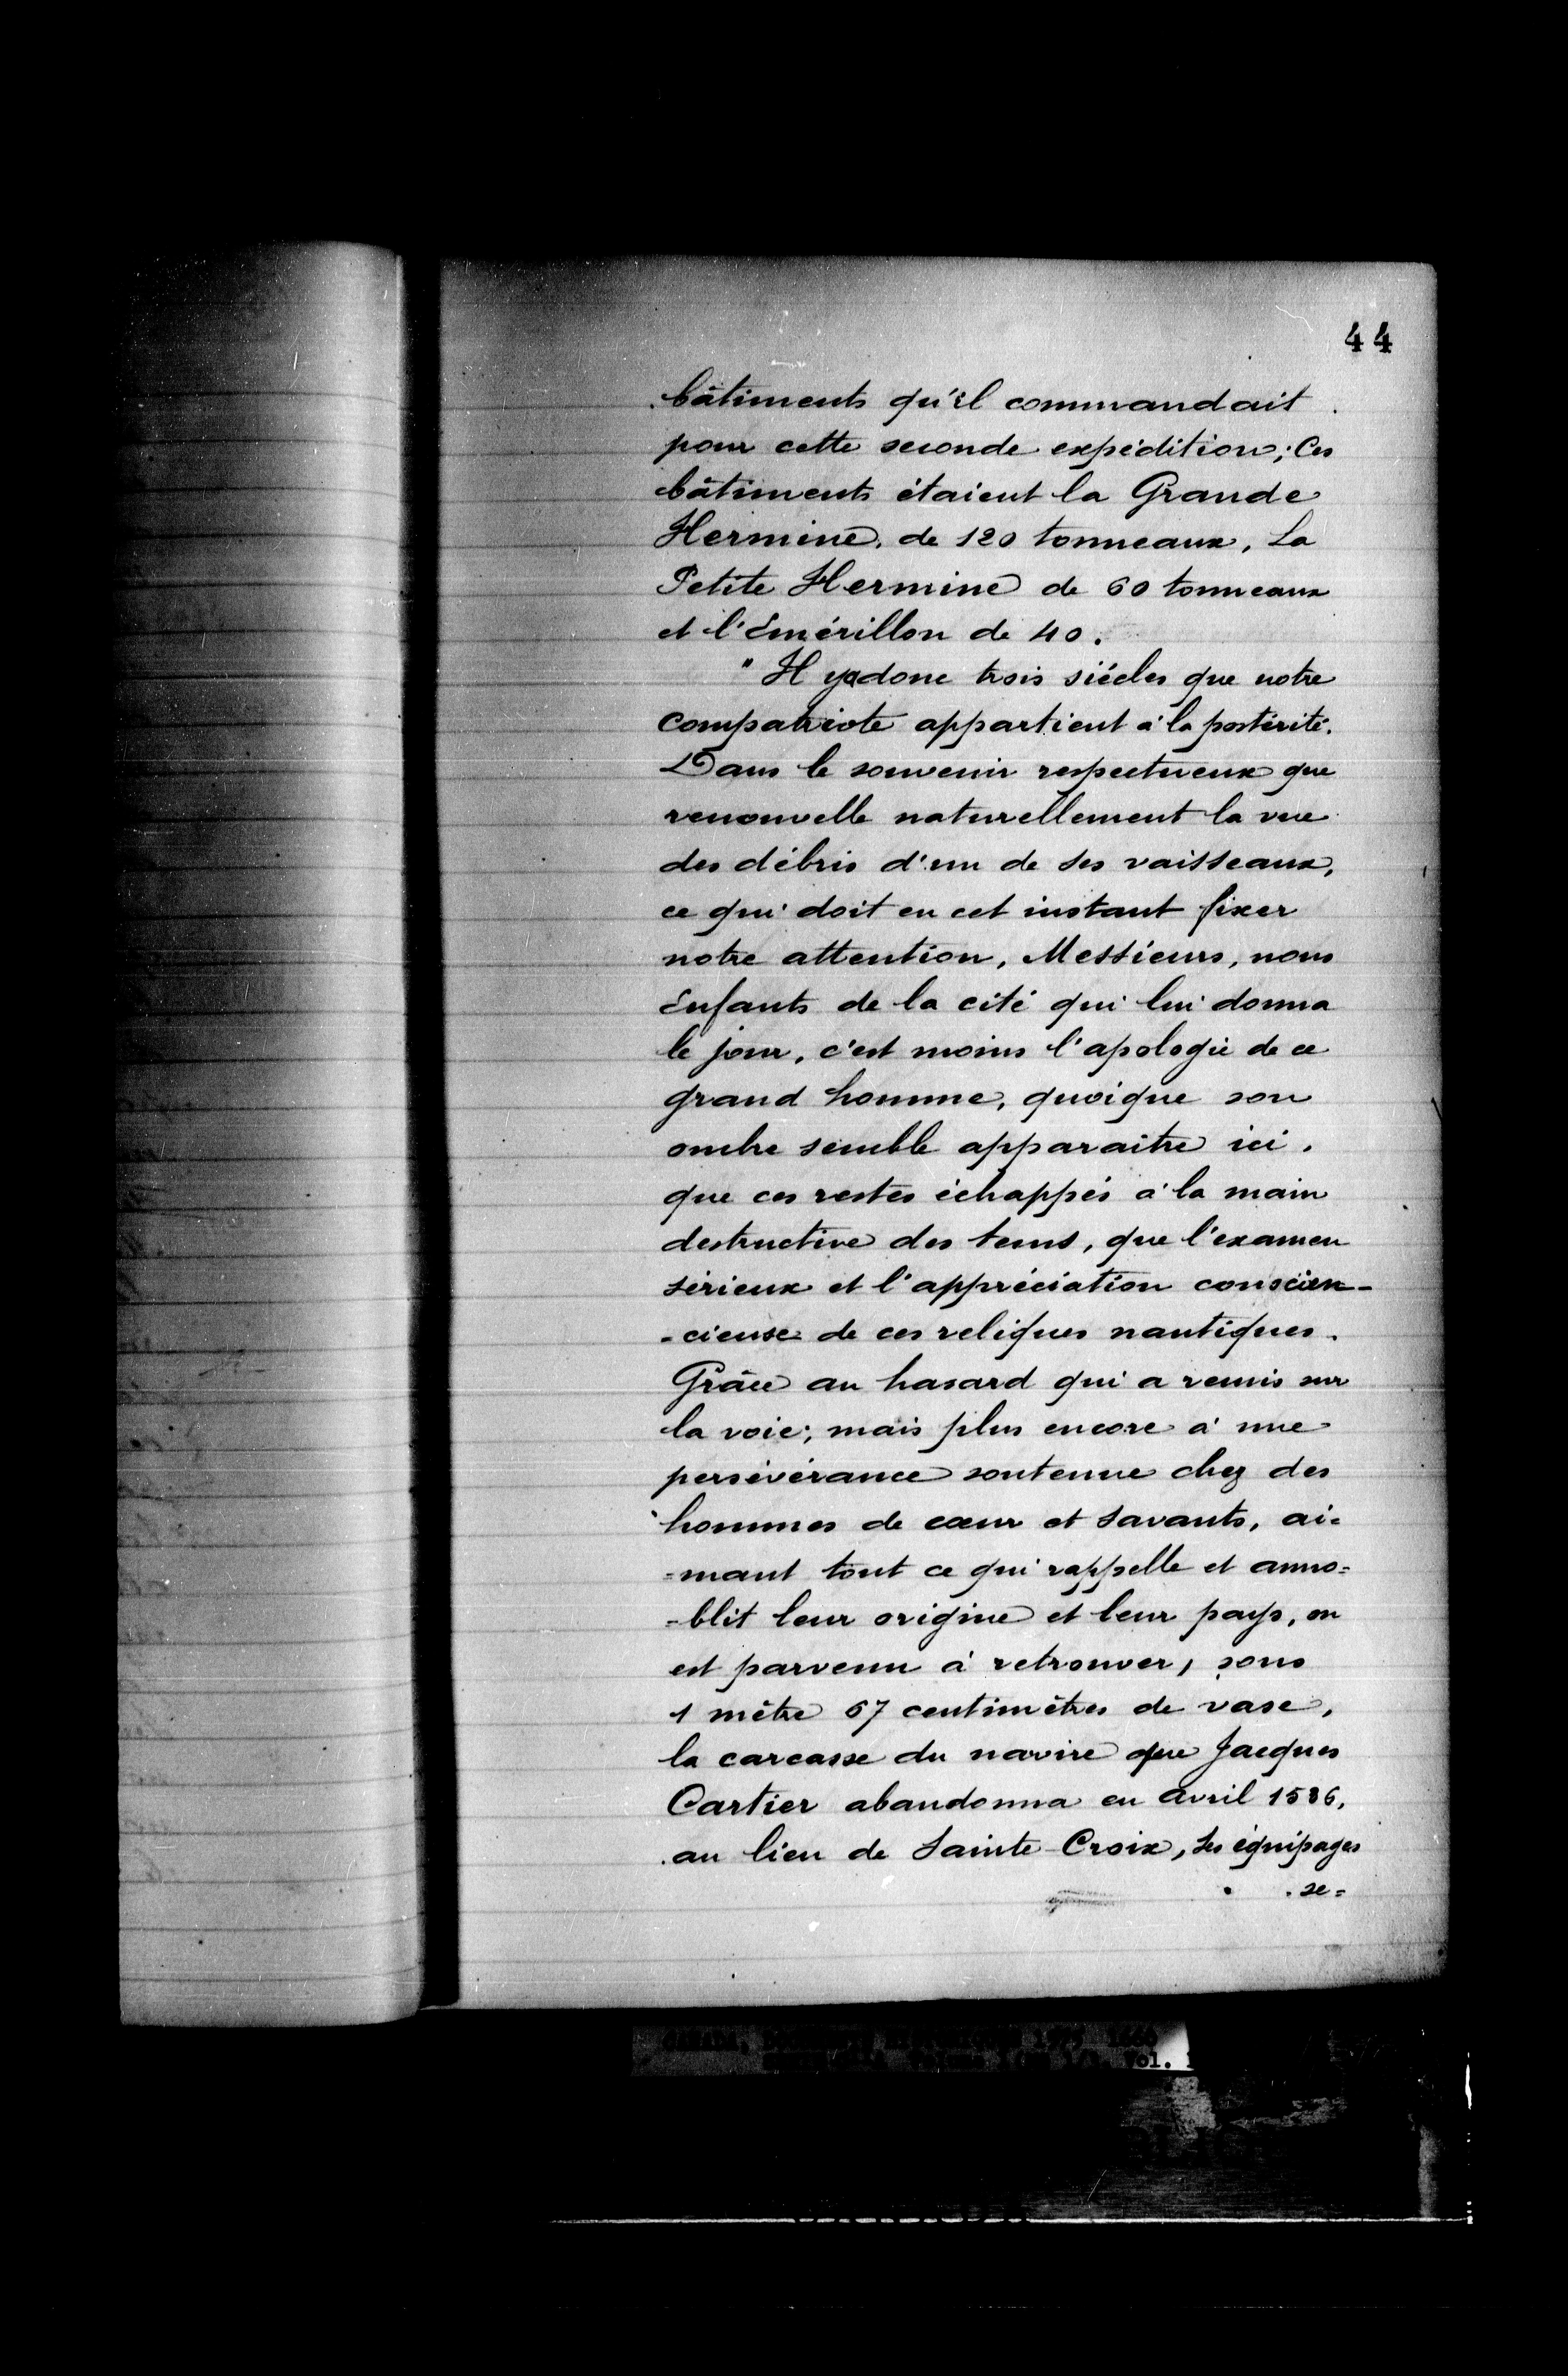 44
bâtiments qu'il commandait
pour cette seconde expédition; Ces
bâtiments étaient la Grande
Hermine, de 120 tonneaux, La
Petite Hermine de 60 tonneaux
et l'Emérillon de 40.
" Il y a donc trois siécles que notre
compatriote appartient à la postérité.
Dans le souvenir respectueux que
renouvelle naturellement la vue
des débris d'un de ses vaisseaux,
ce qui doit en cet instant fixer
notre attention, Messieurs, nous
Enfants de la cité qui lui donna
le jour, c'est moins l'apologie de ce
grand homme, quoique son
ombre semble apparaitre ici,
que ces restes échappés à la main
destructive des tems, que l'examen
sérieux et l'appréciation conscien-
-cieuse de ces reliques nautiques.
Grâce au hasard qui a remis sur
la voie; mais plus encore à une
persévérance soutenue chez des
hommes de cœur et savants, ai=
=mant tout ce qui rappelle et anno=
=blit leur origine et leur pays, on
est parvenu à retrouver, sous
1 mètre 67 centimètres de vase,
la carcasse du navire que Jacques
Cartier abandonna en avril 1536,
au lieu de Sainte-Croix, ses équipages
se=
ol.